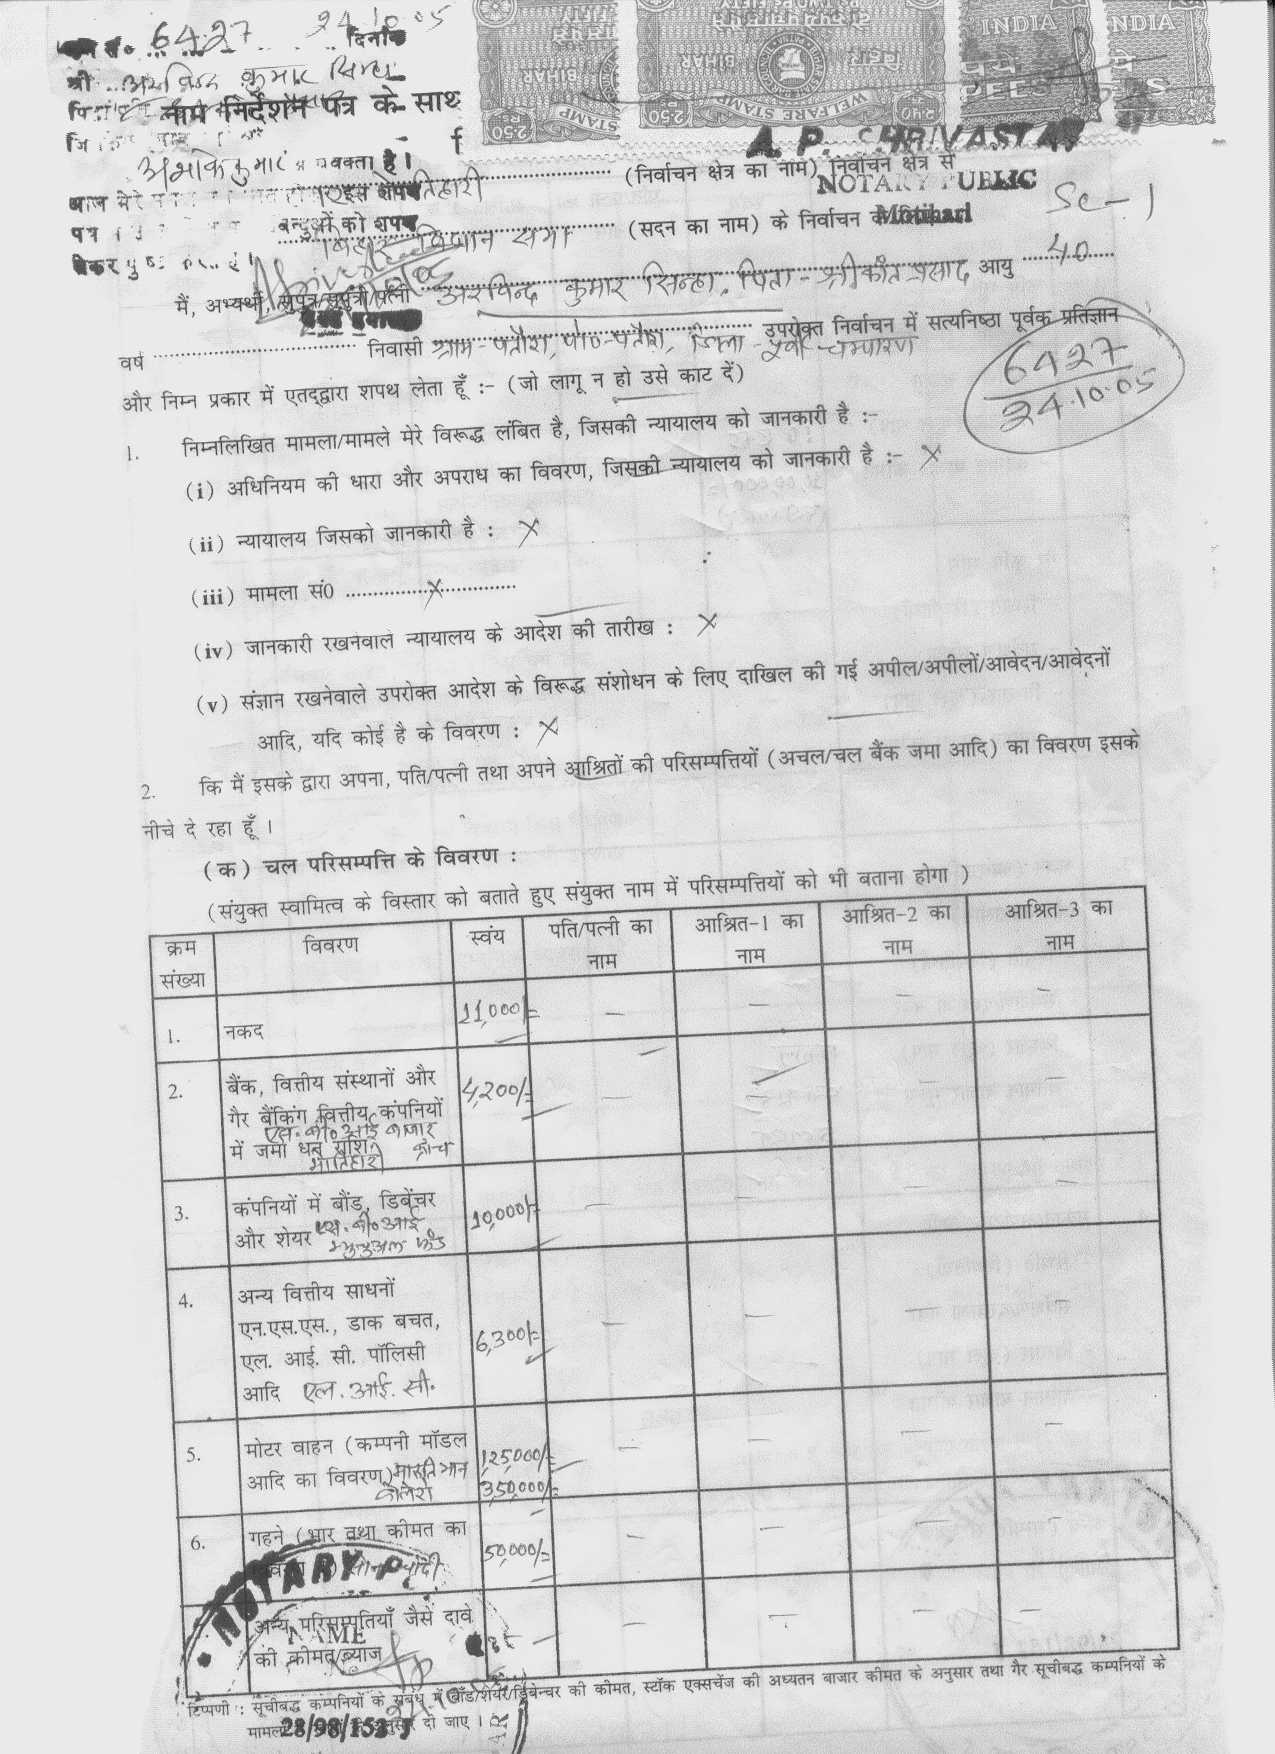 6427 24.10.05
दिनांक
श्री अरविन्द कुमार सिन्हा
नाम निर्देशन पत्र के साथ
BIHAR BIHAR INDIA INDIA
WELFARE STAMP STAMP
2.50 2.50
A. P. SHRIVASTAV
NOTARY PUBLIC
Motihari
अशोक कुमार प्रवक्ता है।
(निर्वाचन क्षेत्र का नाम) निर्वाचन क्षेत्र से
बन्धुओं को शपथ
बिहार विधान सभा (सदन का नाम) के निर्वाचन के
Se-1
मैं, अभ्यर्थी, सुपुत्र/सुपुत्री/पत्नी अरविन्द कुमार सिन्हा, पिता - श्रीकांत प्रसाद आयु 40
वर्ष निवासी ग्राम-पतौरा, पो०-पतौरा, जिला-पूर्वी चम्पारण उपरोक्त निर्वाचन में सत्यनिष्ठा पूर्वक प्रतिज्ञान
6427
24.10.05
और निम्न प्रकार में एतद्द्वारा शपथ लेता हूँ :- (जो लागू न हो उसे काट दें)
1. निम्नलिखित मामला/मामले मेरे विरूद्ध लंबित है, जिसकी न्यायालय को जानकारी है :-
(i) अधिनियम की धारा और अपराध का विवरण, जिसकी न्यायालय को जानकारी है :- X
(ii) न्यायालय जिसको जानकारी है : X
(iii) मामला सं0 ........X........
(iv) जानकारी रखनेवाले न्यायालय के आदेश की तारीख : X
(v) संज्ञान रखनेवाले उपरोक्त आदेश के विरूद्ध संशोधन के लिए दाखिल की गई अपील/अपीलों/आवेदन/आवेदनों
आदि, यदि कोई है के विवरण : X
2. कि मैं इसके द्वारा अपना, पति/पत्नी तथा अपने आश्रितों की परिसम्पत्तियों (अचल/चल बैंक जमा आदि) का विवरण इसके
नीचे दे रहा हूँ ।
(क) चल परिसम्पत्ति के विवरण :
(संयुक्त स्वामित्व के विस्तार को बताते हुए संयुक्त नाम में परिसम्पत्तियों को भी बताना होगा )
क्रम संख्या विवरण स्वंय पति/पत्नी का नाम आश्रित-1 का नाम आश्रित-2 का नाम आश्रित-3 का नाम
1. नकद 11,000/= – – – –
2. बैंक, वित्तीय संस्थानों और 4,200/= – – – –
गैर बैंकिंग वित्तीय कंपनियों
एस.बी०आई बाजार
में जमा धन राशि ब्रांच
मोतिहारी
3. कंपनियों में बौंड, डिबेंचर 10,000/= – – – –
और शेयर एस.बी०आई
म्युचुअल फंड
4. अन्य वित्तीय साधनों
एन.एस.एस., डाक बचत, 6,300/= – – – –
एल. आई. सी. पॉलिसी
आदि एल. आई. सी.
5. मोटर वाहन (कम्पनी मॉडल 1,25,000/= – – – –
आदि का विवरण) मारूति भान 3,50,000/=
बोलेरो
6. गहने (भार तथा कीमत का 50,000/= – – – –
अन्य परिसम्पतियाँ जैसे दावे – – – –
की कीमत/ब्याज
NOTARY
NAME
टिप्पणी : सूचीबद्ध कम्पनियों के संबंध में बौंड/शेयर/डिबेन्चर की कीमत, स्टॉक एक्सचेंज की अध्यतन बाजार कीमत के अनुसार तथा गैर सूचीबद्ध कम्पनियों के
अनुसार दी जाए ।